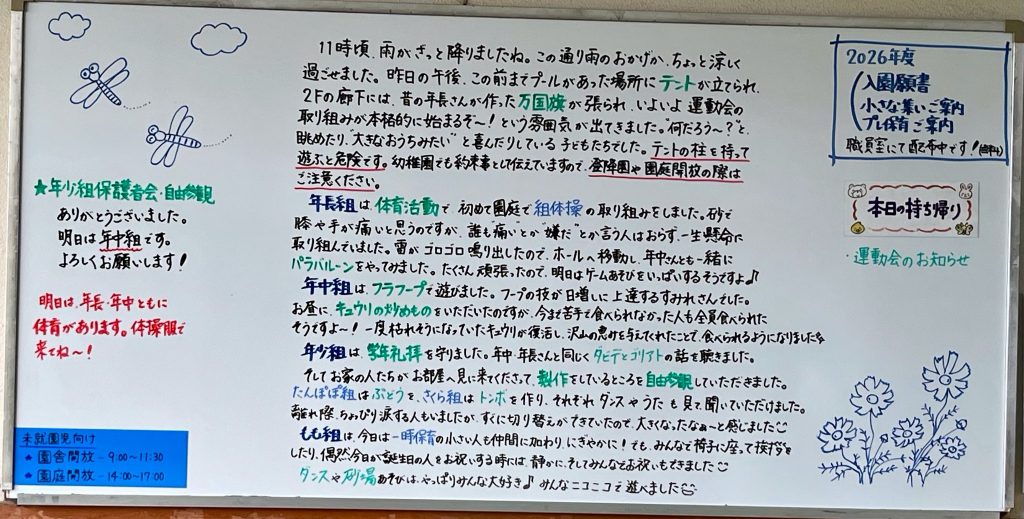 ★年少組保護者会・自由参観
ありがとうございました。
明日は年中組です。
よろしくお願いします！
明日は、年長・年中ともに
体育があります。体操服で
来てね〜！
未就園児向け
★園舎開放－9:00〜11:30
★園庭開放－14:00〜17:00
11時頃、雨がざっと降りましたね。この通り雨のおかげか、ちょっと涼しく
過ごせました。昨日の午後、この前までプールがあった場所にテントが立てられ、
2Fの廊下には、昔の年長さんが作った万国旗が張られ、いよいよ運動会の
取り組みが本格的に始まるぞ〜！という雰囲気が出てきました。"何だろう〜？"と、
眺めたり、"大きなおうちみたい"と喜んだりしている子どもたちでした。テントの柱を持って
遊ぶと危険です。幼稚園でも約束事として伝えていますので、登降園や園庭開放の際は
ご注意ください。
年長組は、体育活動で、初めて園庭で組体操の取り組みをしました。砂で
膝や手が痛いと思うのですが、誰も"痛い"とか"嫌だ"とか言う人はおらず、一生懸命に
取り組んでいました。雷がゴロゴロ鳴り出したので、ホールへ移動し、年中さんとも一緒に
パラバルーンをやってみました。たくさん頑張ったので、明日はゲームあそびをいっぱいするそうですよ♪
年中組は、フラフープで遊びました。フープの技が日増しに上達するすみれさんでした。
お昼に、キュウリの炒めものをいただいたのですが、今まで苦手で食べられなかった人も全員食べられた
そうですよ〜！一度枯れそうになっていたキュウリが復活し、沢山の恵みを与えてくれたことで、食べられるようになりました
年少組は、学年礼拝を守りました。年中・年長さんと同じくダビデとゴリアトの話を聴きました。
そしてお家の人たちがお部屋へ見に来てくださって、製作をしているところを自由参観していただきました。
たんぽぽ組はぶどうを、さくら組はトンボを作り、それぞれダンスやうたも見て聞いていただけました。
離れ際、ちょっぴり涙する人もいましたが、すぐに切り替えができていたので、大きくなったなぁ〜と感じました
もも組は、今日は一時保育の小さい人も仲間に加わり、にぎやかに！でも、みんなで椅子に座って挨拶を
したり、偶然今日が誕生日の人をお祝いする時には、静かに、そしてみんなでお祝いもできました
ダンスや砂場あそびは、やっぱりみんな大好き♪みんなニコニコで遊べました
2026年度
入園願書
小さな集いご案内
プレ保育ご案内
職員室にて配布中です！(無料)
本日の持ち帰り
・運動会のお知らせ